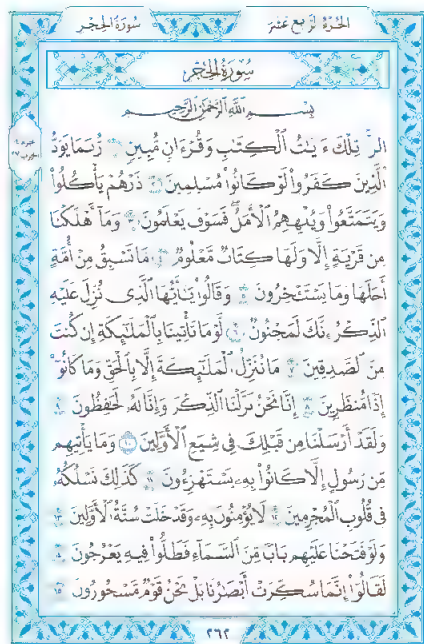 الجزء الرابع عشر
سورة الحجر
سُورَةُ الْحِجْرِ
بِسْمِ اللَّهِ الرَّحْمَٰنِ الرَّحِيمِ
الٓرۚ تِلْكَ ءَايَٰتُ ٱلْكِتَٰبِ وَقُرْءَانٍ مُّبِينٍ ١ رُّبَمَا يَوَدُّ
ٱلَّذِينَ كَفَرُوا۟ لَوْ كَانُوا۟ مُسْلِمِينَ ٢ ذَرْهُمْ يَأْكُلُوا۟
وَيَتَمَتَّعُوا۟ وَيُلْهِهِمُ ٱلْأَمَلُۖ فَسَوْفَ يَعْلَمُونَ ٣ وَمَآ أَهْلَكْنَا
مِن قَرْيَةٍ إِلَّا وَلَهَا كِتَابٌ مَّعْلُومٌ ٤ مَّا تَسْبِقُ مِنْ أُمَّةٍ
أَجَلَهَا وَمَا يَسْتَـْٔخِرُونَ ٥ وَقَالُوا۟ يَٰٓأَيُّهَا ٱلَّذِى نُزِّلَ عَلَيْهِ
ٱلذِّكْرُ إِنَّكَ لَمَجْنُونٌ ٦ لَّوْ مَا تَأْتِينَا بِٱلْمَلَٰٓئِكَةِ إِن كُنتَ
مِنَ ٱلصَّٰدِقِينَ ٧ مَا نُنَزِّلُ ٱلْمَلَٰٓئِكَةَ إِلَّا بِٱلْحَقِّ وَمَا كَانُوٓا۟
إِذًا مُّنظَرِينَ ٨ إِنَّا نَحْنُ نَزَّلْنَا ٱلذِّكْرَ وَإِنَّا لَهُۥ لَحَٰفِظُونَ ٩
وَلَقَدْ أَرْسَلْنَا مِن قَبْلِكَ فِى شِيَعِ ٱلْأَوَّلِينَ ١٠ وَمَا يَأْتِيهِم
مِّن رَّسُولٍ إِلَّا كَانُوا۟ بِهِۦ يَسْتَهْزِءُونَ ١١ كَذَٰلِكَ نَسْلُكُهُۥ
فِى قُلُوبِ ٱلْمُجْرِمِينَ ١٢ لَا يُؤْمِنُونَ بِهِۦ وَقَدْ خَلَتْ سُنَّةُ ٱلْأَوَّلِينَ ١٣
وَلَوْ فَتَحْنَا عَلَيْهِم بَابًا مِّنَ ٱلسَّمَآءِ فَظَلُّوا۟ فِيهِ يَعْرُجُونَ ١٤
لَقَالُوٓا۟ إِنَّمَا سُكِّرَتْ أَبْصَٰرُنَا بَلْ نَحْنُ قَوْمٌ مَّسْحُورُونَ ١٥
٢٦٢